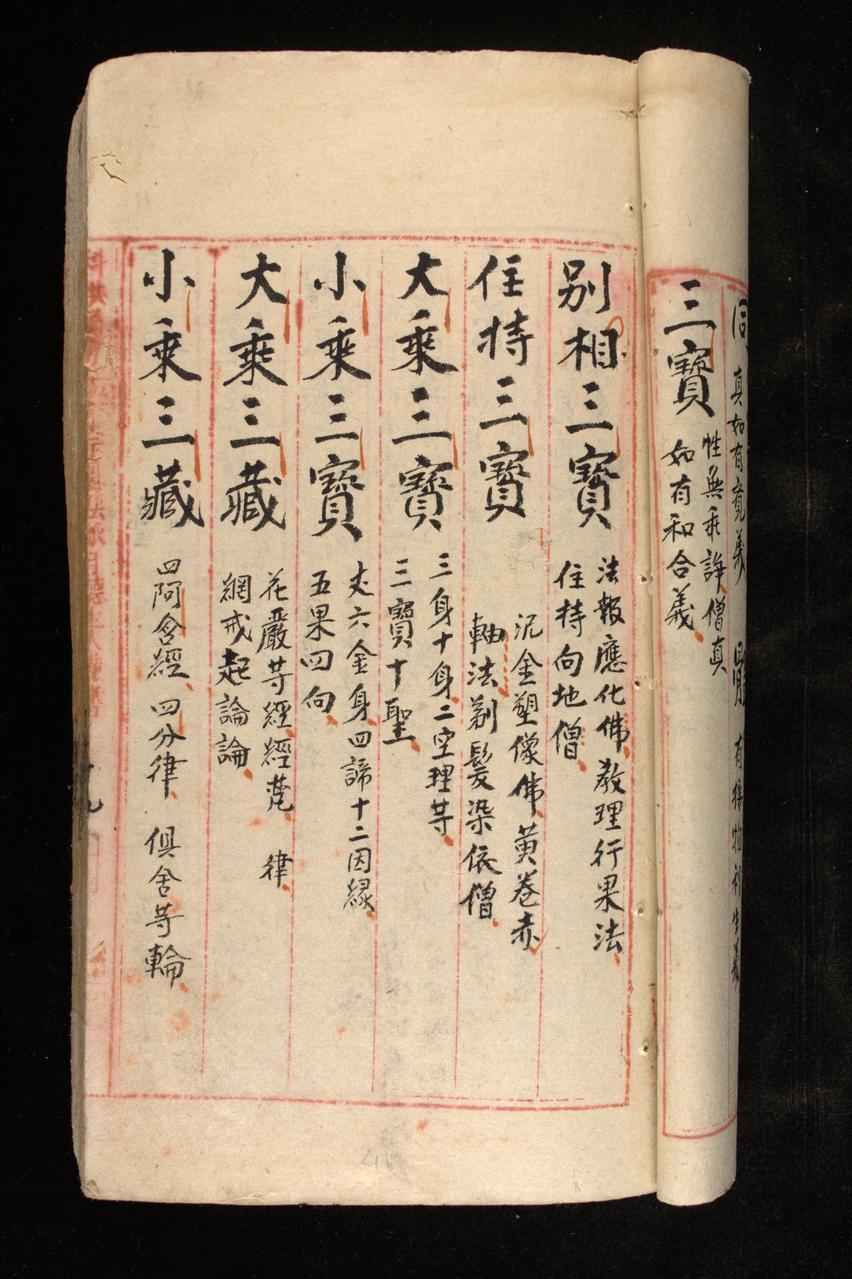 真如有覺義
有揚物利生義
三寶
性無乖諍僧真
如有和合義
別相三寶
法報應化佛教理行果法
住持向地僧
住持三寶
泥金塑像佛黄卷赤
軸法剃髮染依僧
大乘三寶
三身十身二空理䓁
三寶十聖
小乘三寶
丈六金身四諦十二因緣
五果四向
大乘三藏
花嚴䓁經經梵 律
網戒起論論
小乘三藏
四阿含經 四分律 俱舍䓁輪